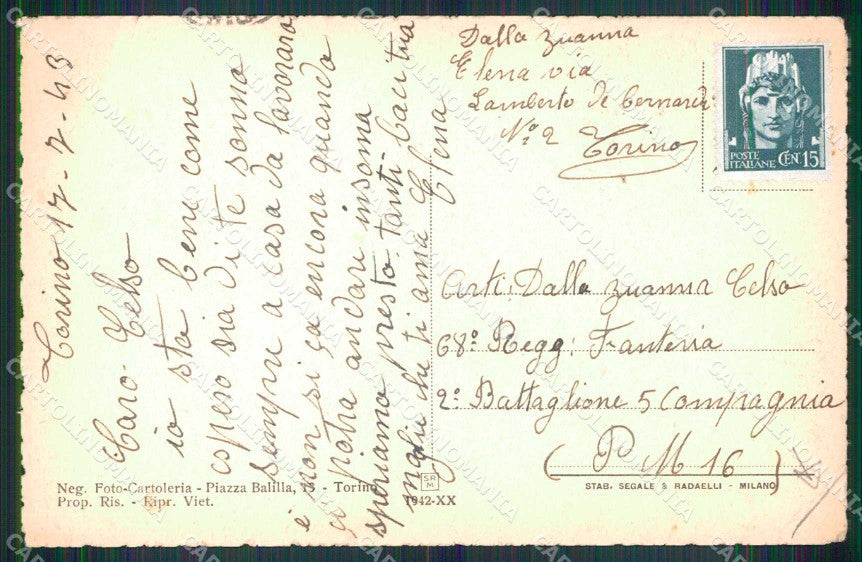 Torino 17-2-43
Caro Celso
io sta bene come
espero sia di te sonno
sempre a casa da lavorara
e non si sa encora quando
potra andare insoma
speriamo presto tanti baci tua
moglie che ti ama Elena
Elena
Dalla Zuanna
Elena via
Lamberto de Bernardi
N° 2
Torino
POSTE
ITALIANE CEN. 15
Arti: Dalla Zuanna Celso
68° Regg: Fanteria
2° Battaglione 5 Compagnia
(P M 16)
Neg. Foto-Cartoleria - Piazza Balilla, 15 - Torino
Prop. Ris. - Ripr. Viet.
SR
M
1942-XX
STAB. SEGALE & RADAELLI - MILANO
CARTOLINOMANIA